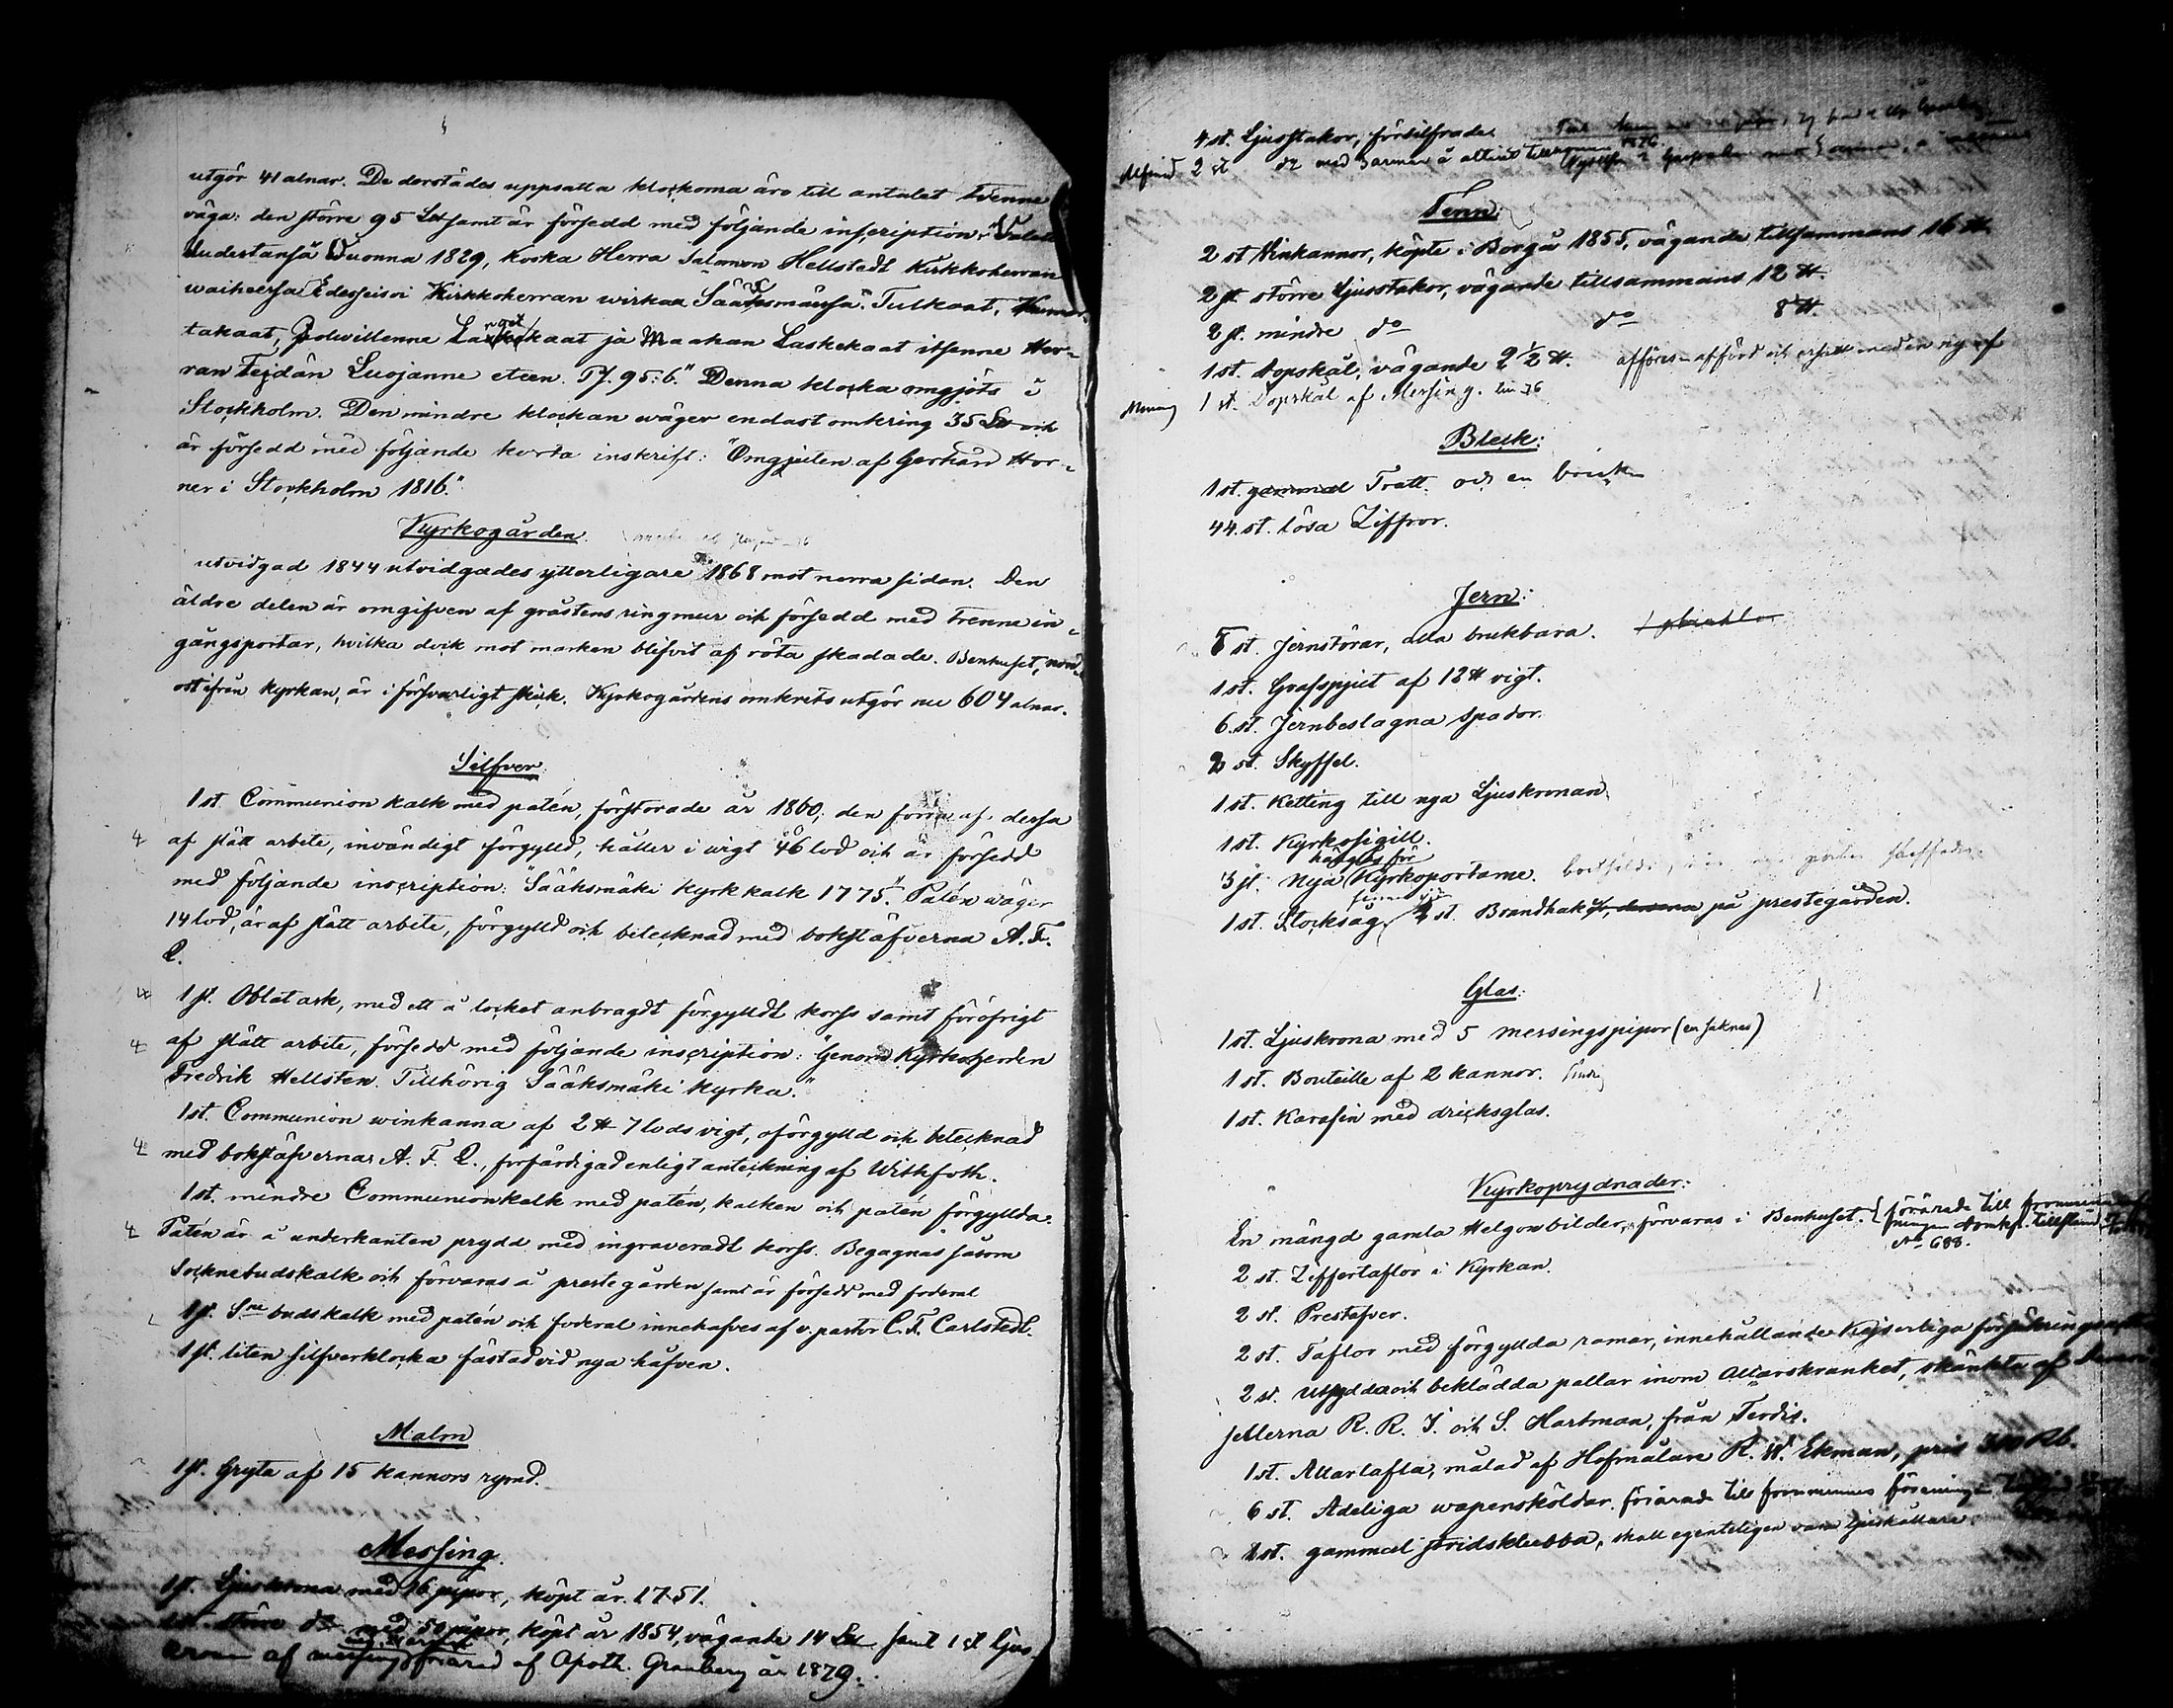 utgör 41 alnar. De derstädes uppsatta klockorna äro till antalet tvenne
väga: den större 95 L℔ samt är försedd med följande inscription: "Valettu
Uudestansä Wuonna 1829, koska Herra Salomon Hellstedt Kirkkoherran
waiheessa Edesseisoi Kirkkoherran wirkaa Sääksmäessä." Tulkaat, Kumar-
takaat, Polwillenne Langetkaat ja Maahan Laskekaat itsenne Her-
ran Tejdän Luojanne eteen. Ps. 95:6." Denna klocka omgjöts i
Stockholm. Den mindre klockan wäger endast omkring 35 L℔ och
är försedd med följande korta inskrift: "Omgjuten af Gerhard Hor-
ner i Stockholm 1816."
Kyrkogården.
utvidgad 1844 utvidgades ytterligare 1868 mot norra sidan. Den
äldre delen är omgifven af gråstens ringmur och försedd med trenne in-
gångsportar, hvilka dock mot marken blifvit af röta skadade. Benhuset, nord-
ost ifrån kyrkan, är i försvarligt skick. Kyrkogårdens omkrets utgör nu 604 alnar.
Silfver
1 st. Communion kalk med patén, förstorade år 1860; den förra af dessa
af slätt arbete, invändigt förgylld, håller i vigt 46 lod och är försedd
med följande inscription: "Sääksmäki kyrkkalk 1775." Patén wäger
14 lod, är af slätt arbete, förgylld och betecknad med bokstäfverna A. F.
L.
1 st. Oblatask, med ett å locket anbragdt förgylldt korss samt föröfrigt
af slätt arbete, försedd med följande inscription: "Genom Kyrkoherden
Fredrik Hellsten. Tillhörig Sääksmäki kyrka."
1 st. Communion winkanna af 2 ℔ 7 lods vigt, oförgylld och betecknad
med bokstäfvernas A. F. L., förfärdigad enligt anteckning af Withfoth.
1 st. mindre Communionkalk med patén, kalken och patén förgyllda.
Patén är å underkanten prydd med ingraveradt korss. Begagnas såsom
Socknebudskalk och förvaras å prestegården samt är försedd med foderal
1 st. Sne budskalk med patén och foderal innehafves af v. pastor C. F. Carlstedt.
1 st. liten silfverklocka fästad vid nya håfven.
Malm
1 st. Gryta af 15 kannors rymd.
Messing.
1 st. Ljuskrona med 16 pipor, köpt år 1751.
1 st. större do med 50 pipor, köpt år 1854, vägande 14 L℔ samt 1 st ljus
krona af messing förärad af Apoth. Granberg år 1879.
4 st. Ljusstakar, försilfrade.
2 st do med 3 armar å altaret tillkomna 1876.
Tenn:
2 st Vinkannor, köpte i Borgå 1855, vägande tillsammans 16 ℔.
2 st. större Ljusstakar, vägande tillsammans 12 ℔.
2 st. mindre do do 8 ℔.
1 st. Dopskål, vägande 2 1/2 ℔. afföres afförd och ersatt med en ny af
1 st. Dopskål af Mersing.
Bleck:
1 st. gammal Tratt. och en bricka
44. st. lösa Ziffror.
Jern:
5 st. Jernstörar, alla brukbara.
1 st. Grafspjut af 12 ℔ vigt.
6. st. Jernbeslagna spador.
2 st. Skyffel.
1 st. Ketting till nya Ljuskronan
1 st. Kyrkosigill.
hänglås för
3 st. nya Kyrkoportarne.
1 st. Stocksåg, 2 st. Brandhakar, på prestegården.
Glas:
1 st. Ljuskrona med 5 mersingspipor (en saknas)
1 st. Bouteille af 2 kannor.
1 st. Karafin med dricksglas.
Kyrkoprydnader:
En mängd gamla Helgonbilder, förvaras i Benhuset. förärade till
No 688.
2 st. Ziffertaflor i Kyrkan.
2 st. Prestafver.
2 st. Taflor med förgyllda ramar, innehållande Kejserliga försäkringarna
2 st. utsydda och beklädda pallar inom Altarskranket, skänkta af Demoi-
sellerna R. R. I. och S. Hartman, från Terdis.
1 st. Altartafla, målad af Hofmålare R. W. Ekman, pris 300 Rb.
6 st. Adeliga wapensköldar. förärade till fornminnes förening
1 st. gammal stridsklubba, skall egenteligen vara ljushållare